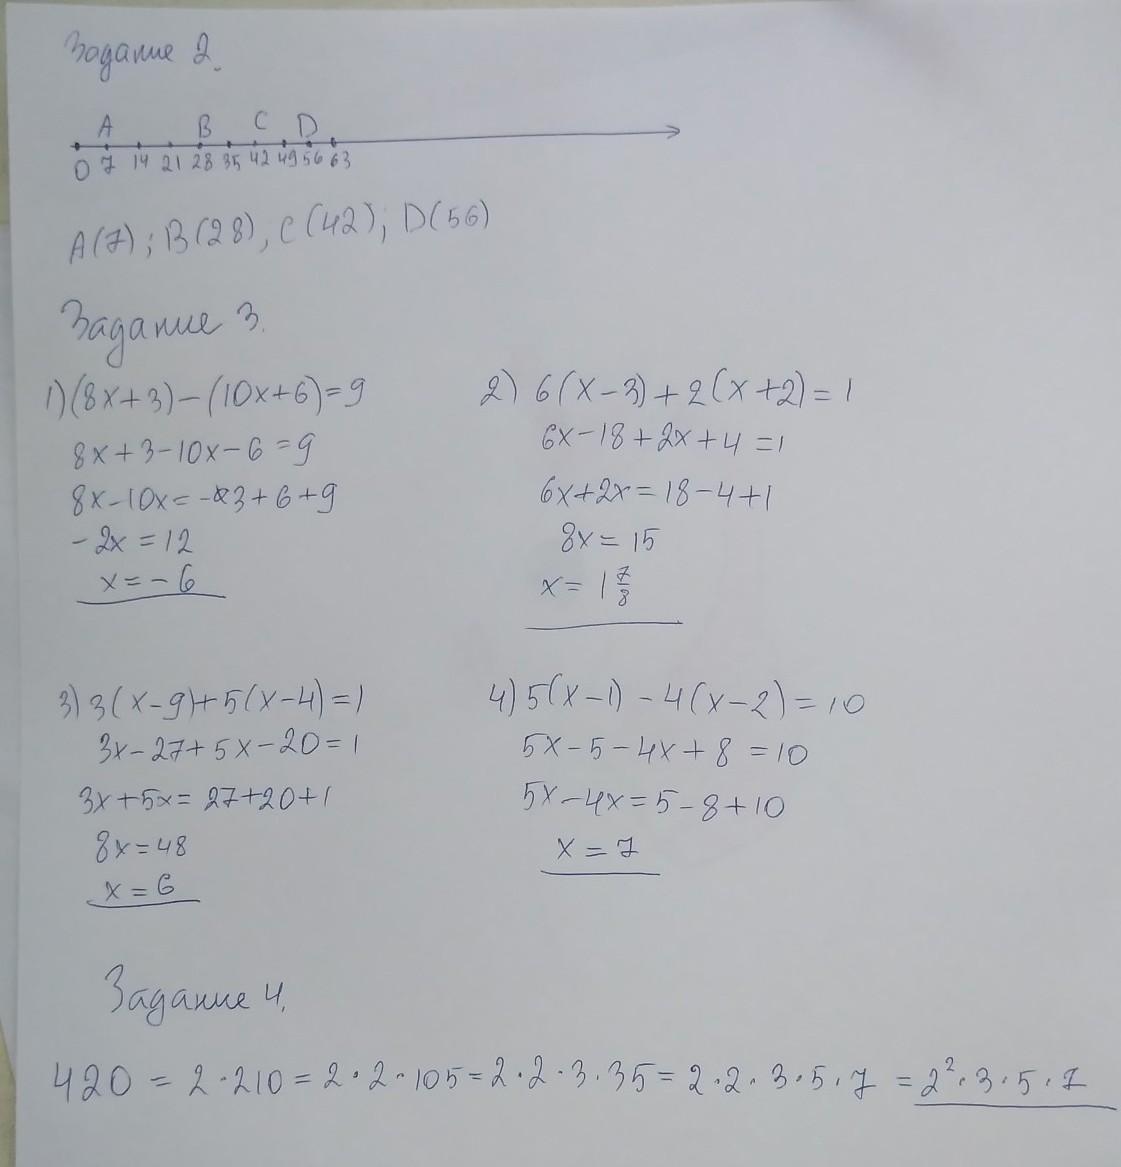 Задание 2.
A B C D
0 7 14 21 28 35 42 49 56 63
A(7); B(28), C(42); D(56)
Задание 3.
1) (8x+3)-(10x+6)=9
8x+3-10x-6=9
8x-10x=-3+6+9
-2x=12
x=-6
2) 6(x-3)+2(x+2)=1
6x-18+2x+4=1
6x+2x=18-4+1
8x=15
x=1 7/8
3) 3(x-9)+5(x-4)=1
3x-27+5x-20=1
3x+5x=27+20+1
8x=48
x=6
4) 5(x-1)-4(x-2)=10
5x-5-4x+8=10
5x-4x=5-8+10
x=7
Задание 4.
420=2·210=2·2·105=2·2·3·35=2·2·3·5·7=2²·3·5·7